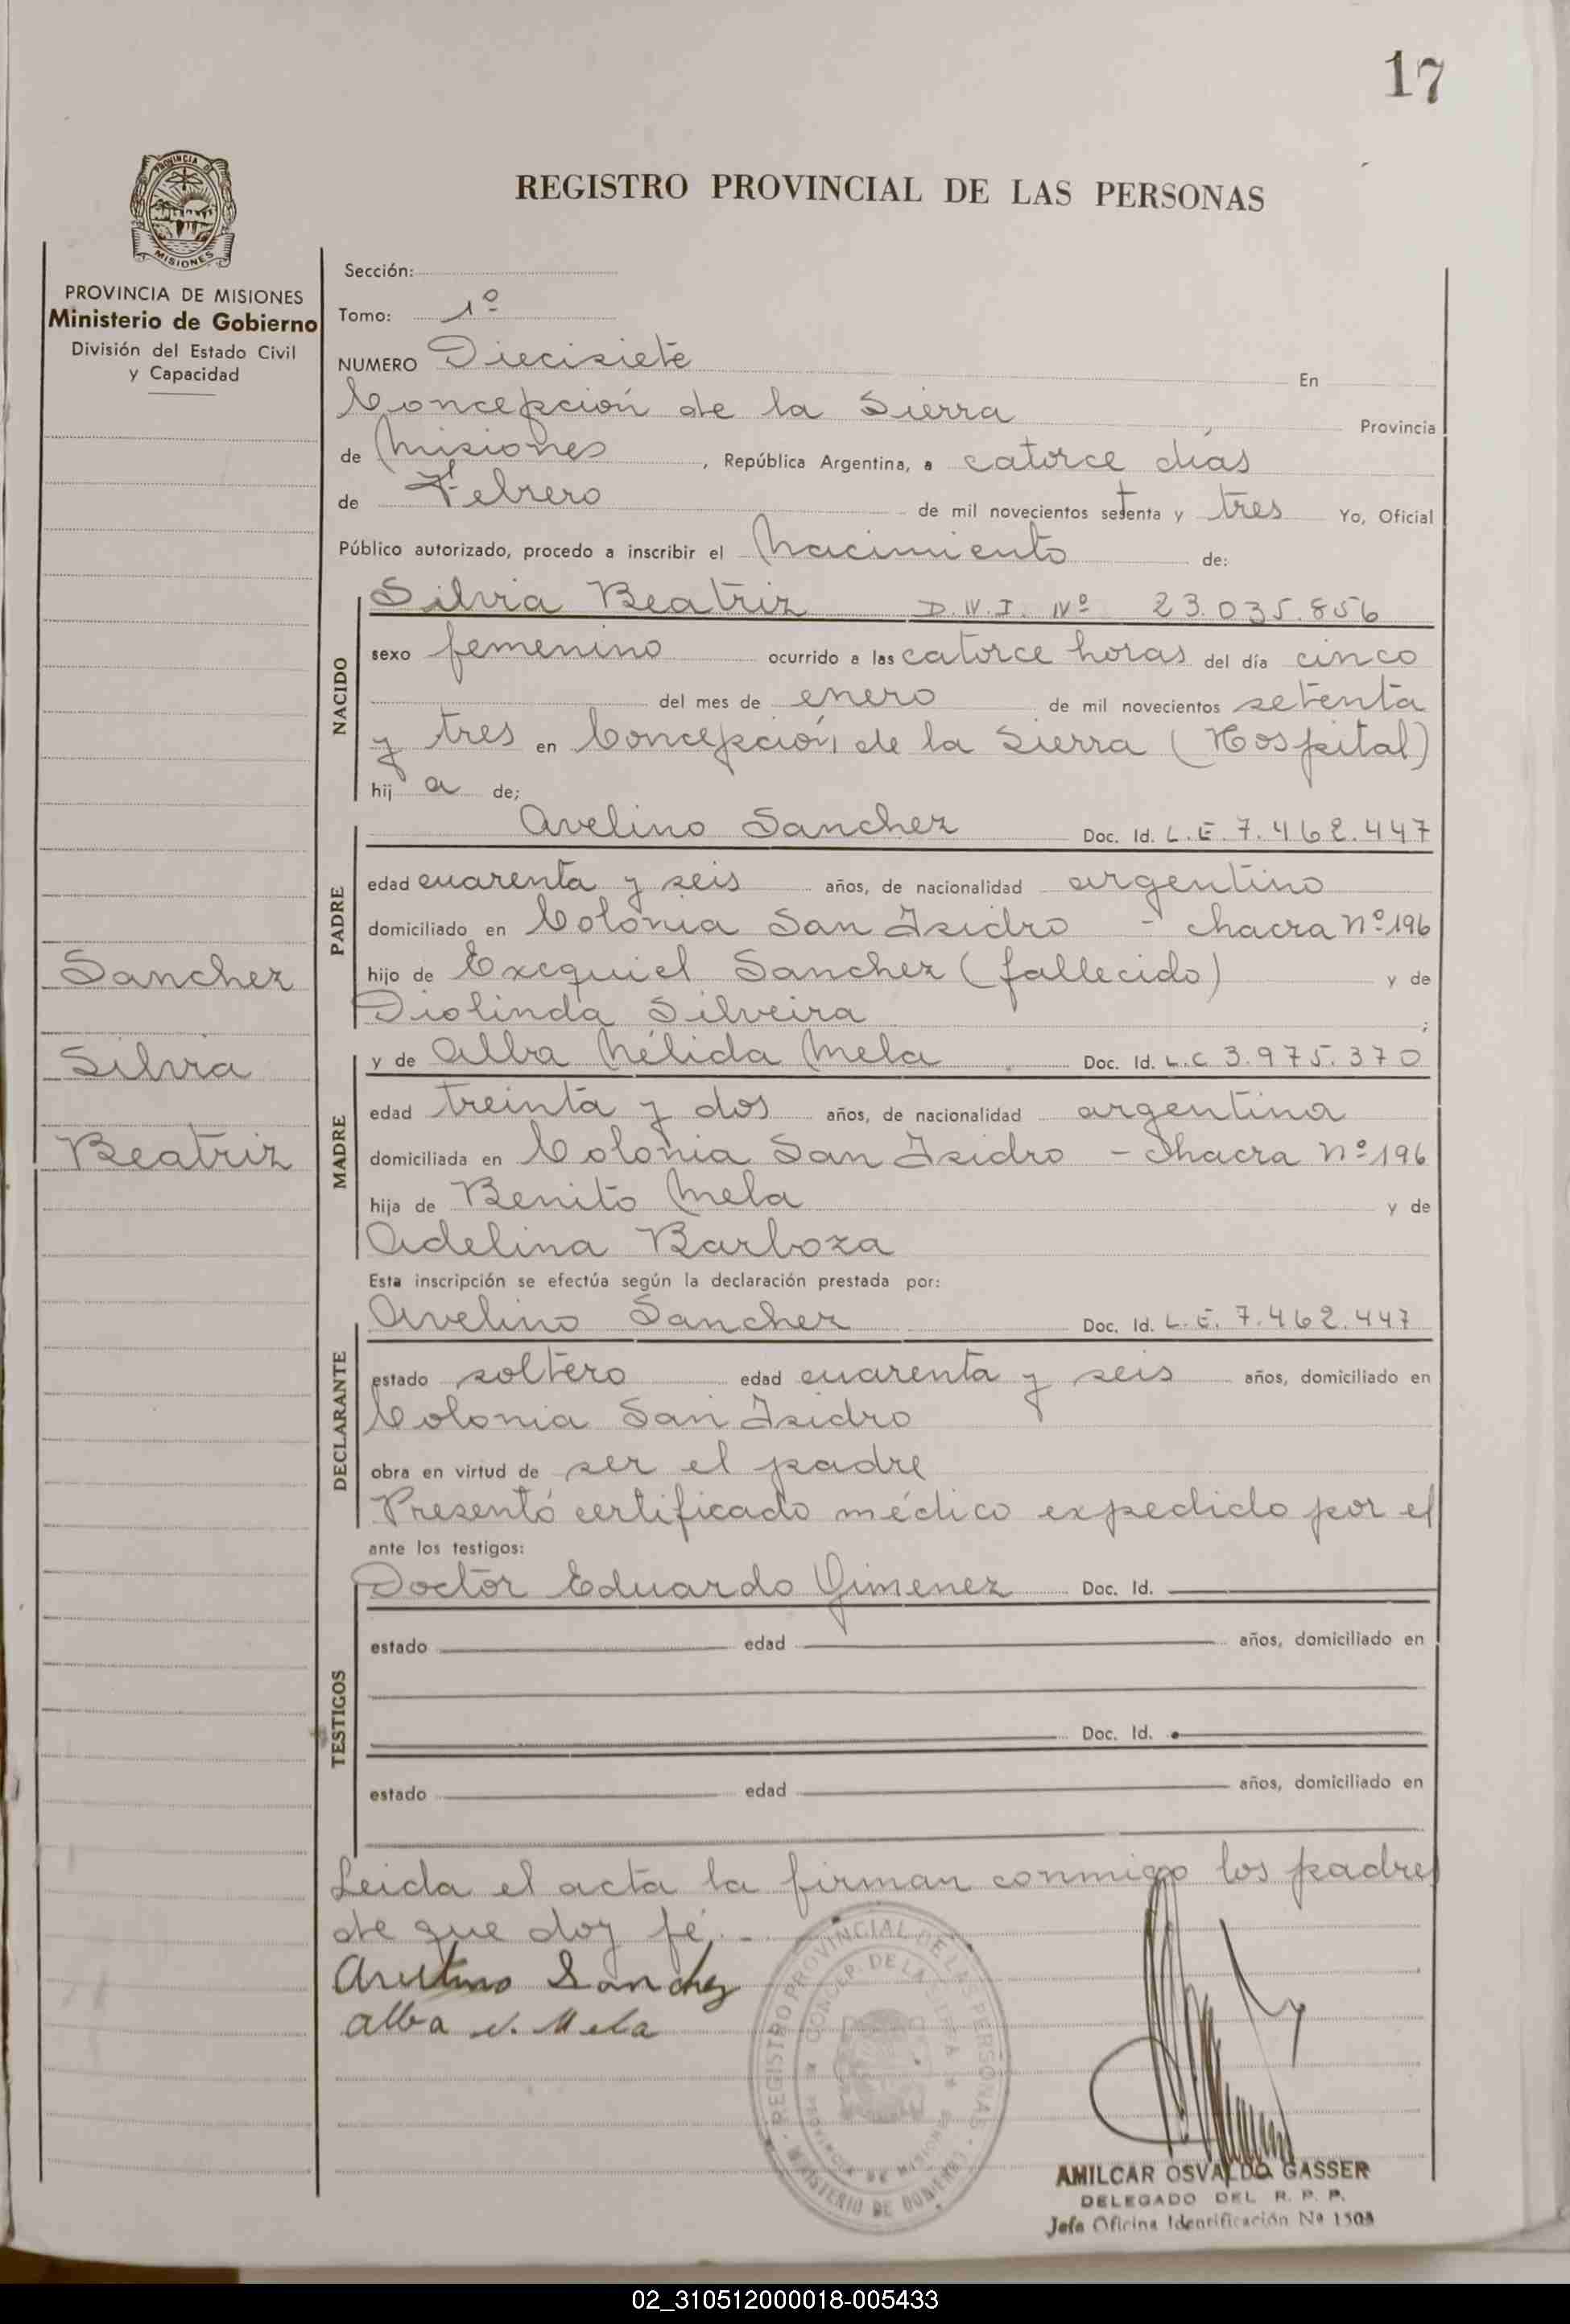 17
REGISTRO PROVINCIAL DE LAS PERSONAS
PROVINCIA DE
MISIONES
PROVINCIA DE MISIONES
Ministerio de Gobierno
División del Estado Civil
y Capacidad
Sanchez
Silvia
Beatriz
Sección:
Tomo: 1º
NUMERO Diecisiete En
Concepción de la Sierra Provincia
de Misiones, República Argentina, a catorce días
de Febrero de mil novecientos setenta y tres Yo, Oficial
Público autorizado, procedo a inscribir el Nacimiento de:
NACIDO
Silvia Beatriz D.N.I. Nº 23.035.856
sexo femenino ocurrido a las catorce horas del día cinco
del mes de enero de mil novecientos setenta
y tres en Concepción de la Sierra (Hospital)
hij a de;
PADRE
Avelino Sanchez Doc. Id. L.E 7.462.447
edad cuarenta y seis años, de nacionalidad argentino
domiciliado en Colonia San Isidro - chacra Nº 196
hijo de Exequiel Sanchez (fallecido) y de
Diolinda Silveira ;
MADRE
y de Alba Nélida Mela Doc. Id. L.C 3.975.370
edad treinta y dos años, de nacionalidad argentina
domiciliada en Colonia San Isidro - Chacra Nº 196
hija de Benito Mela y de
Adelina Barboza
Esta inscripción se efectúa según la declaración prestada por:
DECLARANTE
Avelino Sanchez Doc. Id. L.E. 7.462.447
estado soltero edad cuarenta y seis años, domiciliado en
Colonia San Isidro
obra en virtud de ser el padre
Presentó certificado médico expedido por el
ante los testigos:
TESTIGOS
Doctor Eduardo Gimenez Doc. Id.
estado edad años, domiciliado en
Doc. Id.
estado edad años, domiciliado en
Leida el acta la firman conmigo los padres
de que doy fé.-
Avelino Sanchez
Alba N. Mela
REGISTRO PROVINCIAL DE LAS PERSONAS
CONCEP. DE LA SIERRA
PROVINCIA DE MISIONES
MINISTERIO DE GOBIERNO
AMILCAR OSVALDO GASSER
DELEGADO DEL R. P. P.
Jefe Oficina Identificación Nº 1508
02_310512000018-005433